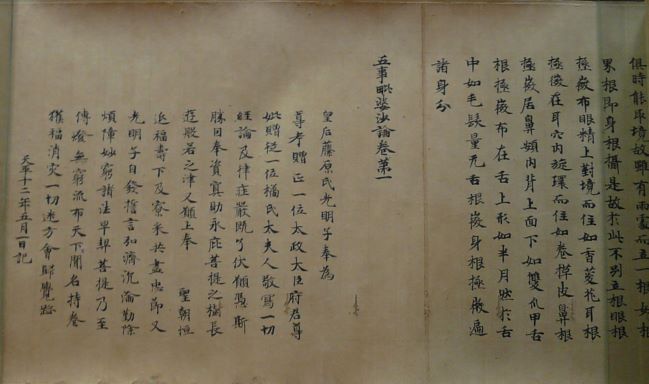 俱時能取境故雖有兩處而立一根
根即身根攝是故於此不別立根眼根
極微布眼精上對境而住如香菱花耳根
極微在耳穴內旋環而住如卷樺皮鼻根
極微居鼻頞內背上面下如雙爪甲舌
根極微布在舌上形如半月然於舌
中如毛髮量无舌根微身根極微遍
諸身分
五事毗婆沙論卷第一
皇后藤原氏光明子奉為
尊考贈正一位太政太臣府君尊
妣贈從一位橘氏太夫人敬寫一切
經論及律莊嚴既了伏願憑斯
勝因奉資冥助永庇菩提之樹長
遊般若之津又願上奉 聖朝恒
延福壽下及寮采共盡忠節又
光明子自發誓言弘濟沉淪勤除
煩障妙窮諸法早契菩提乃至
傳燈無窮流布天下聞名持卷
獲福消灾一切迷方會歸覺路
天平十二年五月一日記